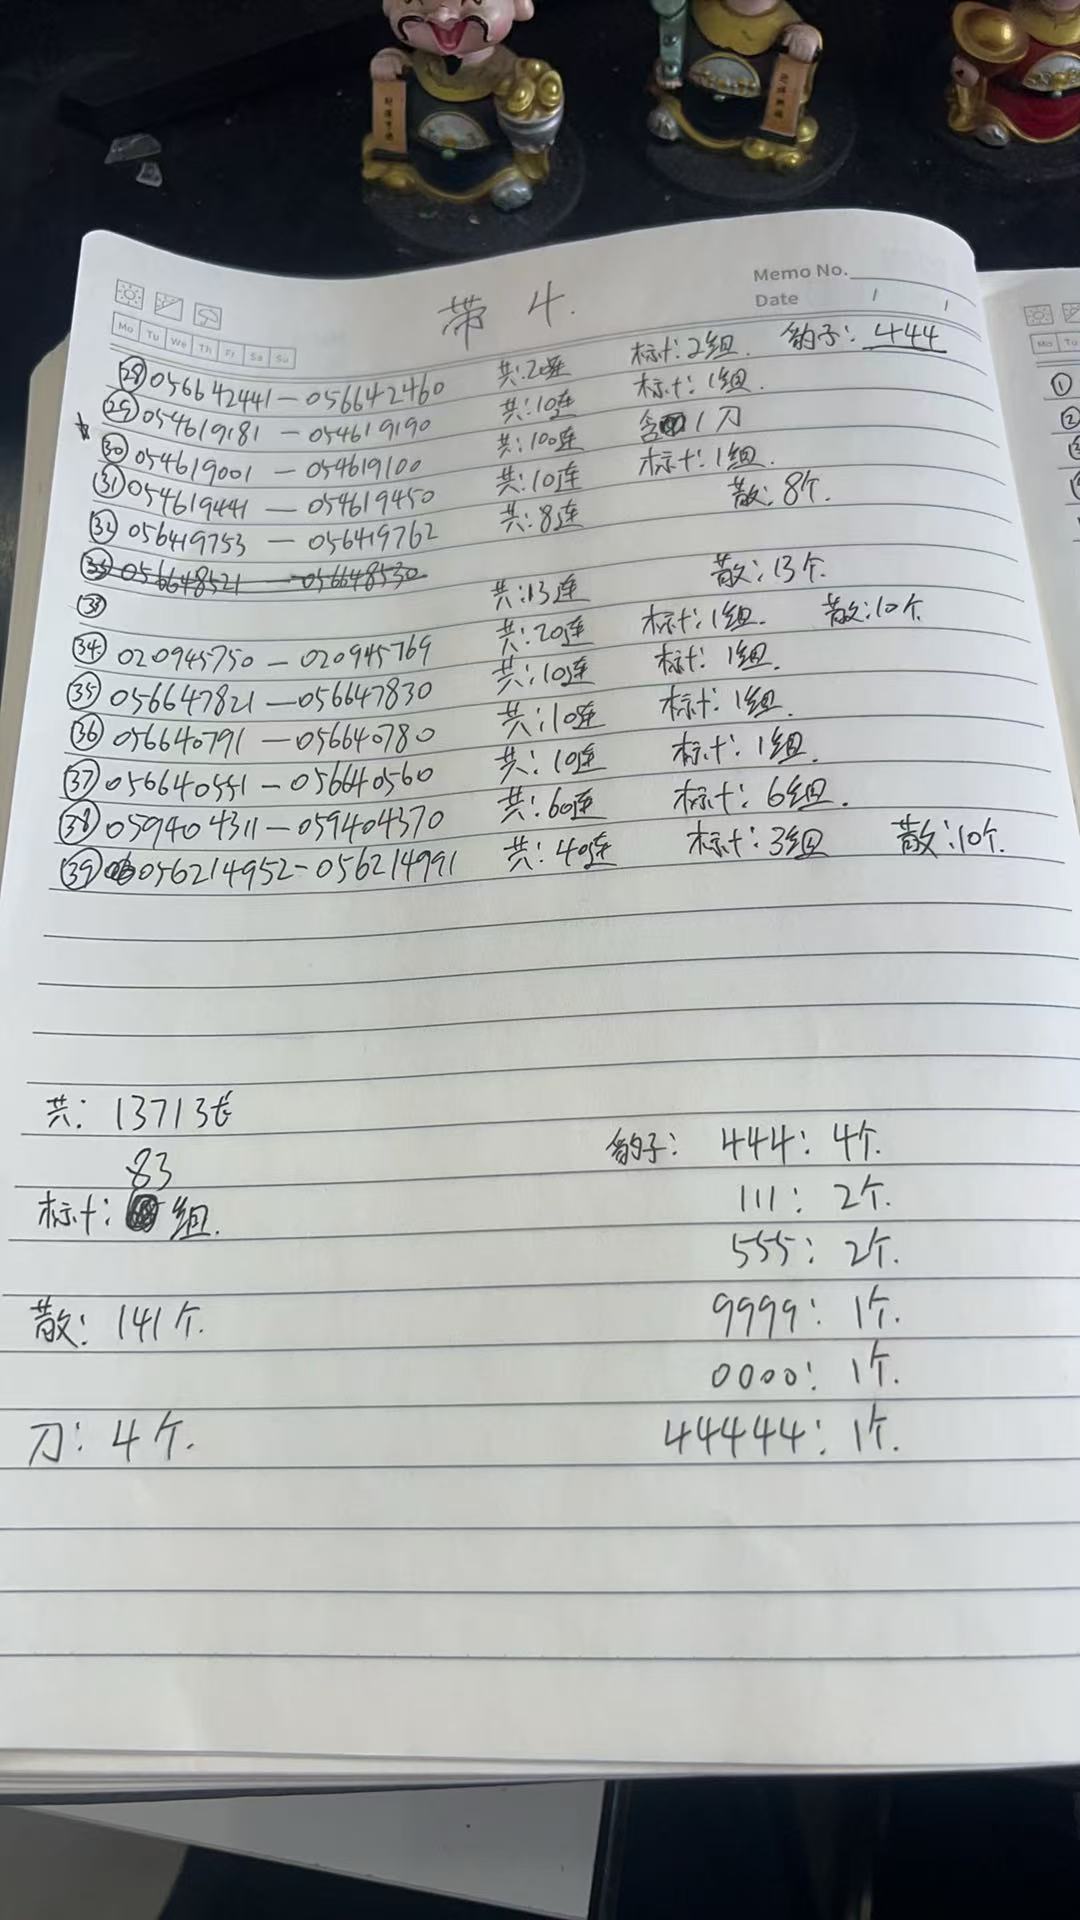 Memo No.
Date / /
Mo Tu We Th Fr Sa Su
带 4.
㉘ 056642441 — 056642460 共:20连 标十:2组. 豹子: 444
㉙ 054619181 — 054619190 共:10连 标十:1组.
㉚ 054619001 — 054619100 共:100连 含1刀
㉛ 054619441 — 054619450 共:10连 标十:1组.
㉜ 056419753 — 056419762 共:8连 散:8个.
㉝ 056648521 — 056648530
㉝ 共:13连 散:13个.
㉞ 020945750 — 020945769 共:20连 标十:1组. 散:10个
㉟ 056647821 — 056647830 共:10连 标十:1组.
㊱ 056640791 — 056640780 共:10连 标十:1组.
㊲ 056640551 — 056640560 共:10连 标十:1组.
㊳ 059404311 — 059404370 共:60连 标十:6组.
㊴ 056214952 - 056214991 共:40连 标十:3组 散:10个.
共: 1371张
83
标十: 组.
散: 141个.
刀: 4个.
豹子: 444: 4个.
111: 2个.
555: 2个.
9999: 1个.
0000: 1个.
44444: 1个.
Mo Tu
①
②